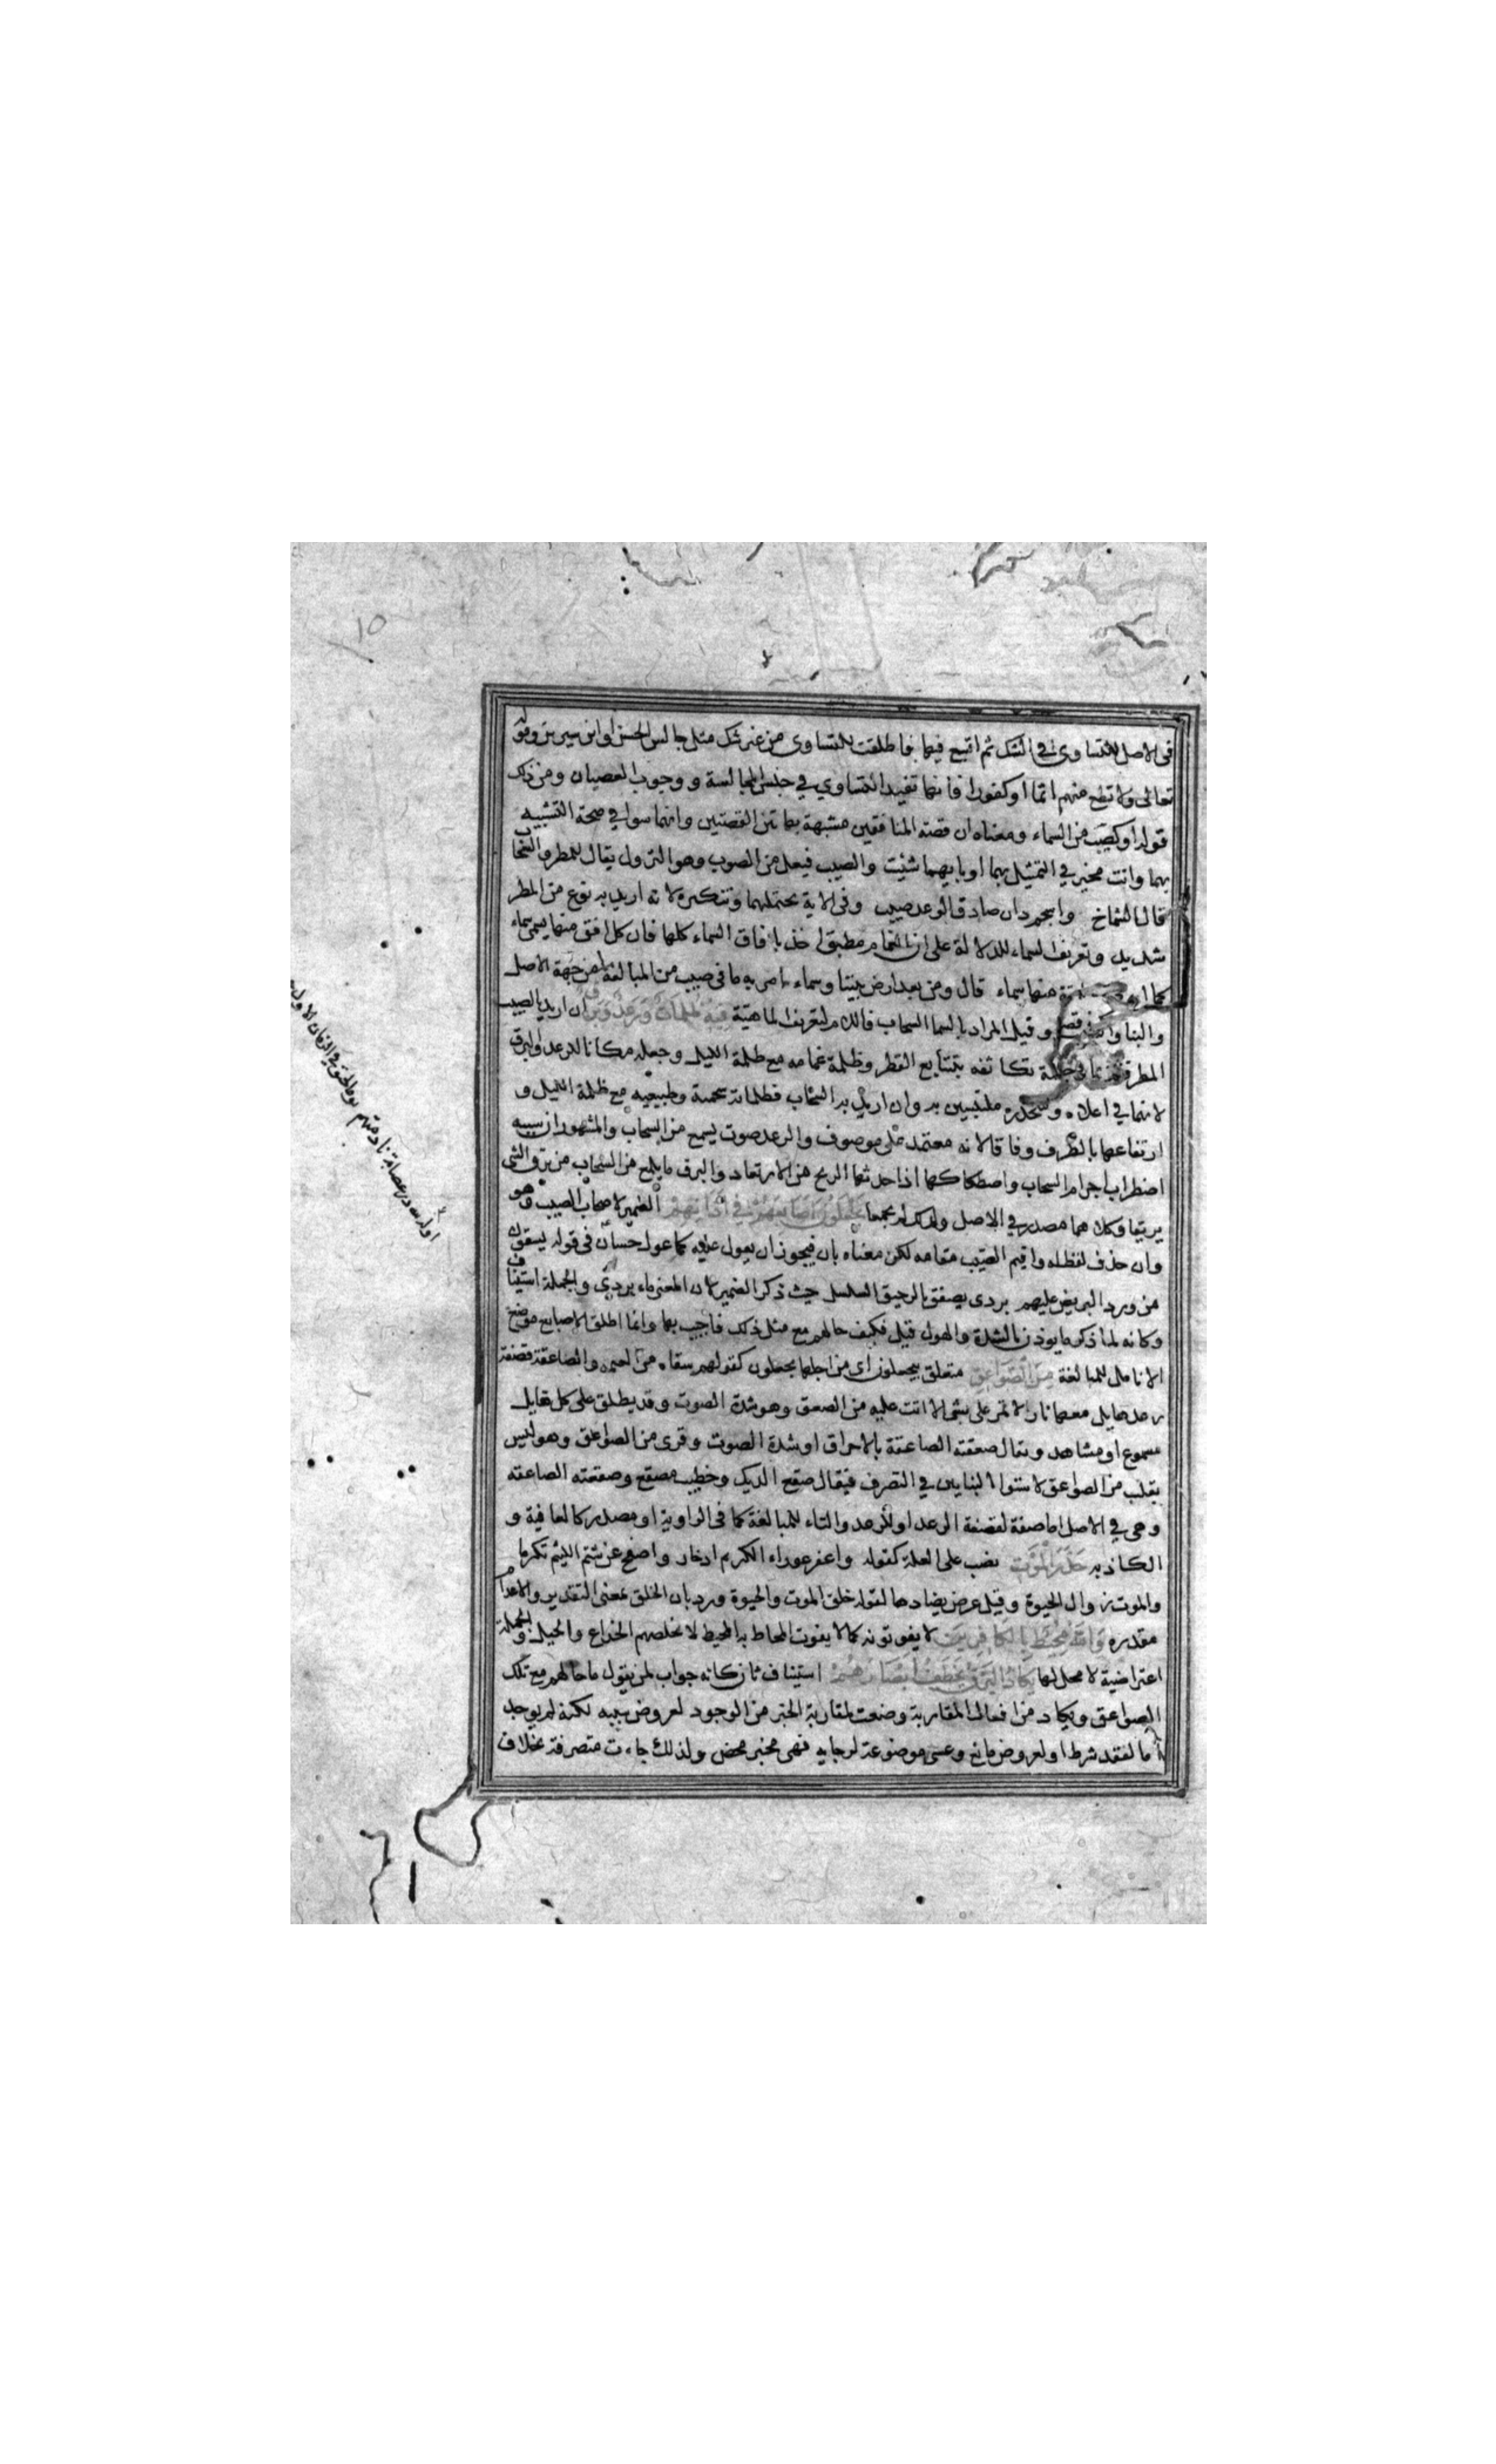 فى الاصل للتساوى فى الشك ثم اتسع فيها فاطلقت للتساوى من غير شك مثل جالس الحسن او ابن سيرين وقوله
تعالى ولا تطع منهم اثما او كفورا فانها تفيد التساوي في حسن المجالسة ووجوب العصيان ومن ذلك
قوله او كصيب من السماء ومعناه ان قصة المنافقين مشبهة بهاتين القصتين وانهما سوا في صحة التشبيه
بهما وانت مخير في التمثيل بهما او بايهما شئت والصيب فيعل من الصوب وهو النزول يقال للمطر والسحاب
قال الشماخ واسحم دان صادق الوعد صيب وفى الاية يحتملهما وتنكيره لانه اريد به نوع من المطر
شديد وتعريف السماء للدلالة على ان الغمام مطبق اخذ بافاق السماء كلها فان كل افق منها يسمى سماء
كما ان كل منها سماء قال ومن بعد ارض بيننا وسماء امر به ما فى صيب من المبالغة من جهة الاصل
والبنا وقيل المراد بالسما السحاب فاللام لتعريف الماهية فيه ظلمات ورعد وبرق ان اريد بالصيب
المطر تكاثفه بتتابع القطر وظلمة غمامه مع ظلمة الليل وجعله مكانا للرعد والبرق
لانهما في اعلاه ومنحدره ملتبسين به وان اريد به السحاب فظلماته سحمته وطبيعيه مع ظلمة الليل و
ارتفاعها بالظرف وفاقا لانه معتمد على موصوف والرعد صوت يسمع من السحاب والمشهور ان سببه
اضطراب اجرام السحاب واصطكاكها اذا حدثها الريح من الارتعاد والبرق ما يلمع من السحاب من برق الشى
بريقا وكلاهما مصدر في الاصل ولذلك لم يجمعا يجعلون اصابعهم في اذانهم الضمير لاصحاب الصيب وهو
وان حذف لفظه واقيم الصيب مقامه لكن معناه باق فيجوز ان يعول عليه كما عول حسان فى قوله يسقون
من ورد البريص عليهم بردى يصفق بالرحيق السلسل حيث ذكر الضمير لان المعنى ماء بردى والجملة استيناف
وكانه لما ذكر ما يوذن بالشدة والهول قيل فكيف حالهم مع مثل ذلك فاجيب بها وانما اطلق الاصابع موضع
الانامل للمبالغة من الصواعق متعلق بيجعلون اى من اجلها يجعلون كقولهم سقاه من العيمه والصاعقة قصفة
رعد هايل معها نار لا تمر على شى الا اتت عليه من الصعق وهو شدة الصوت وقد يطلق على كل هايل
مسموع او مشاهد ويقال صعقته الصاعقة بالاحراق او شدة الصوت وقرى من الصواقع وهو ليس
بقلب من الصواعق لاستوا البنايين في التصرف فيقال صقع الديك وخطيب مصقع وصقعته الصاعقه
وهي في الاصل اما صفة لقصفة الرعد او للرعد والتاء للمبالغة كما فى الراوية او مصدر كالعافية و
الكاذبه حذر الموت نصب على العلة كقوله واغفر عوراء الكريم ادخاره واصفح عن شتم اللئيم تكرما
والموت زوال الحيوة وقيل عرض يضادها لقوله خلق الموت والحيوة ورد بان الخلق بمعنى التقدير والاعدام
مقدره والله محيط بالكافرين لا يفوتونه كما لا يفوت المحاط به المحيط لا يخلصهم الخداع والحيل والجملة
اعتراضية لا محل لها يكاد البرق يخطف ابصارهم استيناف ثان كانه جواب لمن يقول ما حالهم مع تلك
الصواعق ويكاد من افعال المقاربة وضعت لمقاربة الخبر من الوجود لعروض سببه لكنه لم يوجد
اما لفقد شرط او لعروض مانع وعسى موضوعة لرجايه فهى خبر محض ولذلك جاءت متصرفة بخلاف
١٥